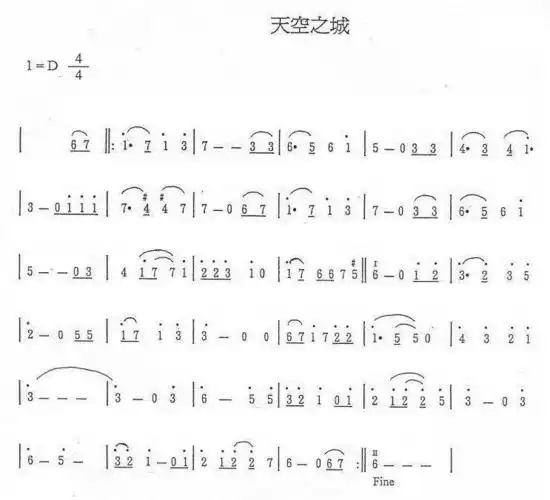 天空之城
1=D 4/4
| 6 7 ‖: i• 7 i 3̇ | 7 – – 3 3 | 6• 5 6 i | 5 – 0 3 3 | 4• 3 4 i• |
3 – 0 i i i | 7• #4 #4 7 | 7 – 0 6 7 | i• 7 i 3̇ | 7 – 0 3 3 | 6• 5 6 i
| 5 – – 0 3 | 4 i 7 7 i | 2̇ 2̇ 3̇ i 0 | i 7 6 6 7 #5 ‖ I 6 – 0 i 2̇ | 3̇• 2̇ 3̇ 5̇
| 2̇ – 0 5 5 | i 7 i 3̇ | 3̇ – 0 0 | 6 7 i 7 2̇ 2̇ | i• 5 5 0 | 4̇ 3̇ 2̇ i
| 3̇ – – – | 3̇ – 0 3̇ | 6̇ – 5̇ 5̇ | 3̇ 2̇ i 0 i | 2̇ i 2̇ 2̇ 5̇ | 3̇ – 0 3̇
| 6̇ – 5̇ – | 3̇ 2̇ i – 0 i | 2̇ i 2̇ 2̇ 7 | 6 – 0 6 7 :‖ II 6 – – – |
Fine